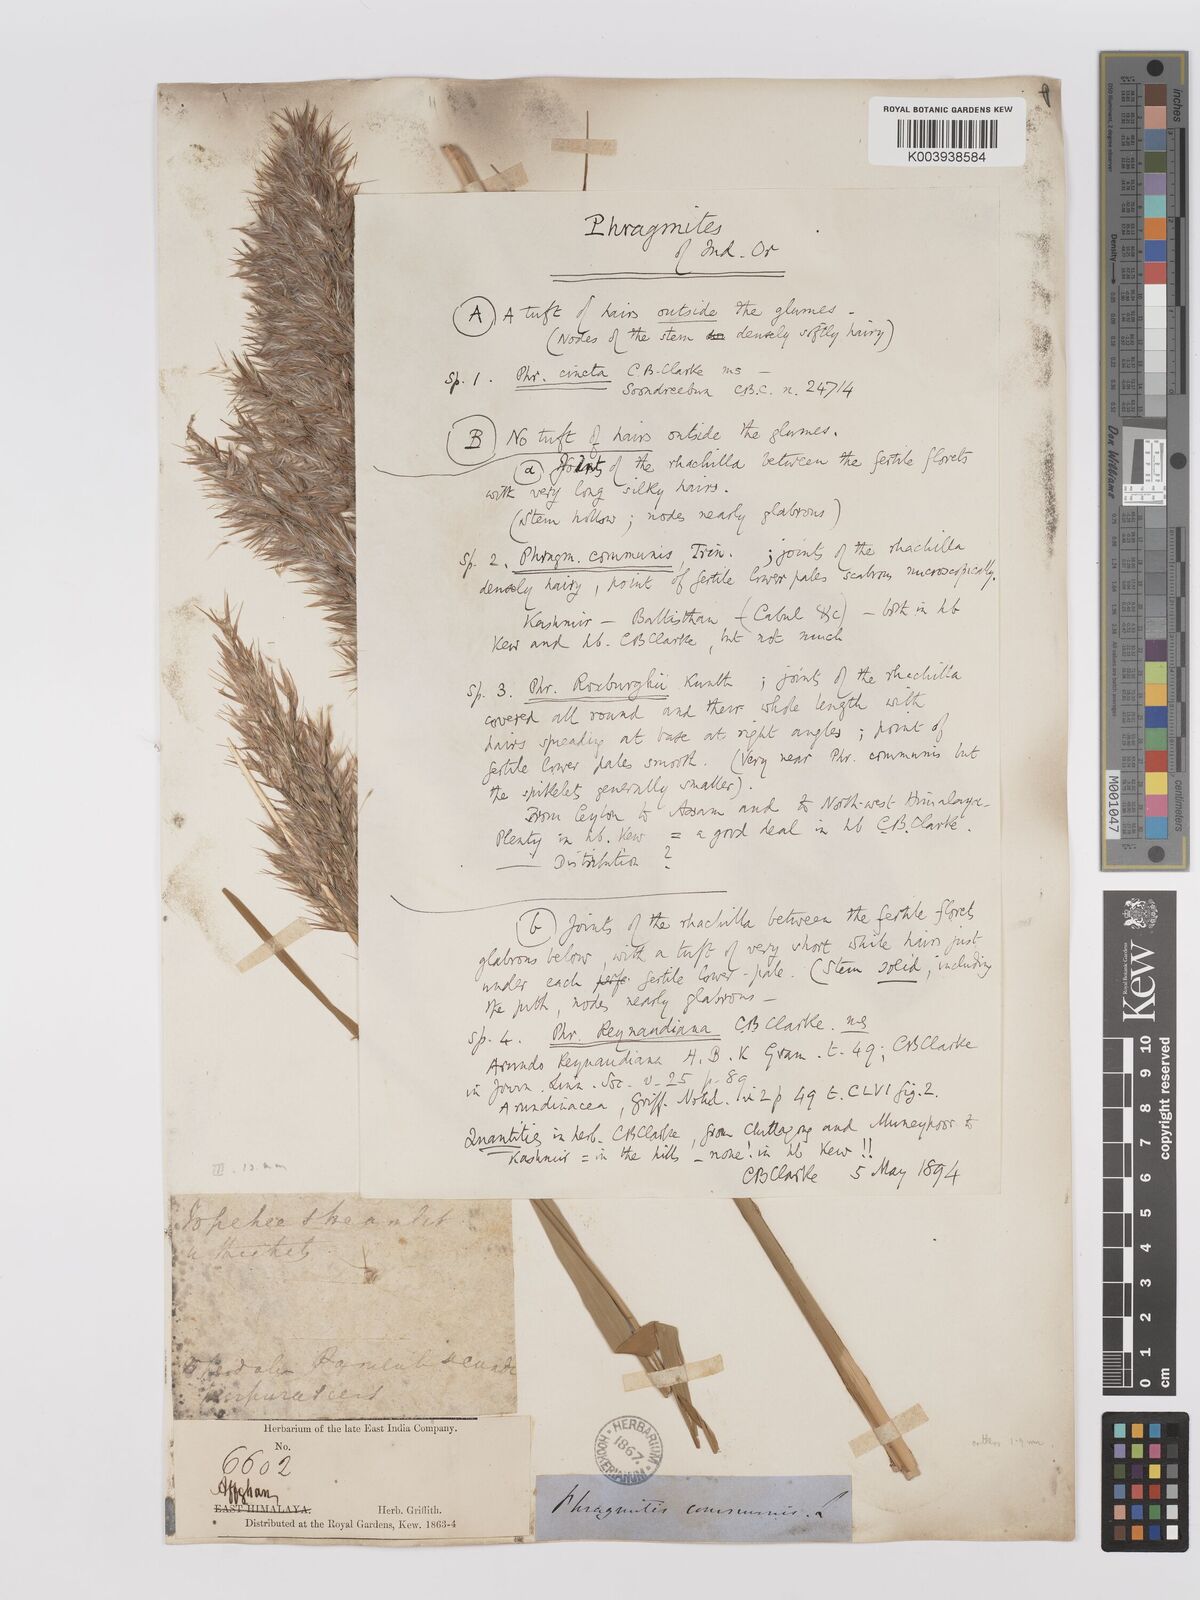 ROYAL BOTANIC GARDENS KEW
K003938584
Phragmites
of Ind. Or
(A) A tuft of hairs outside the glumes -
(Nodes of the stem densely softly hairy)
Sp. 1. Phr. cincta C.B.Clarke ms -
Soondreebun C.B.C. n. 24714
(B) No tuft of hairs outside the glumes.
(a) Joints of the rhachilla between the fertile florets
with very long silky hairs.
(Stem hollow; nodes nearly glabrous)
Sp. 2. Phragm. communis, Trin. ; joints of the rhachilla
densely hairy, point of fertile lower pales scabrous microscopically.
Kashmir - Baltisthan - (Cabul &c) - both in hb
Kew and hb. CBClarke, but not much
Sp. 3. Phr. Roxburghii Kunth ; joints of the rhachilla
covered all round and their whole length with
hairs spreading at base at right angles ; point of
fertile lower pales smooth. (Very near Phr. communis but
the spikelets generally smaller).
From Ceylon to Assam and to North-west Himalaya -
Plenty in hb. Kew = a good deal in hb C.B.Clarke.
Distribution ?
(b) Joints of the rhachilla between the fertile florets
glabrous below, with a tuft of very short white hairs just
under each perf. fertile lower-pale. (Stem solid, including
the pith, nodes nearly glabrous -
Sp. 4. Phr. Reynaudiana CBClarke. ms
Arundo Reynaudiana H. B. K Gram. t. 49; CBClarke
in Journ. Linn. Soc. v. 25 p. 89
Arundinacea, Griff. Notul. iii 2 p 49 t. CLVI fig. 2.
Quantities in herb. CBClarke, from Chittagong and Muneypoor to
Kashmir = in the hills - none! in hb Kew !!
CBClarke 5 May 1894
thickets
purpurascens
Herbarium of the late East India Company.
No.
6602
Affghan
EAST HIMALAYA. Herb. Griffith.
Distributed at the Royal Gardens, Kew. 1863-4
HERBARIUM
HOOKERIANUM
1867.
Phragmitis communis.
anthers 1.9 mm
inches
centimetres
Don Williams
M001047
Royal Botanic Gardens
Kew
copyright reserved
0 1 2 3 4 5 6 7 8 9 10
cm